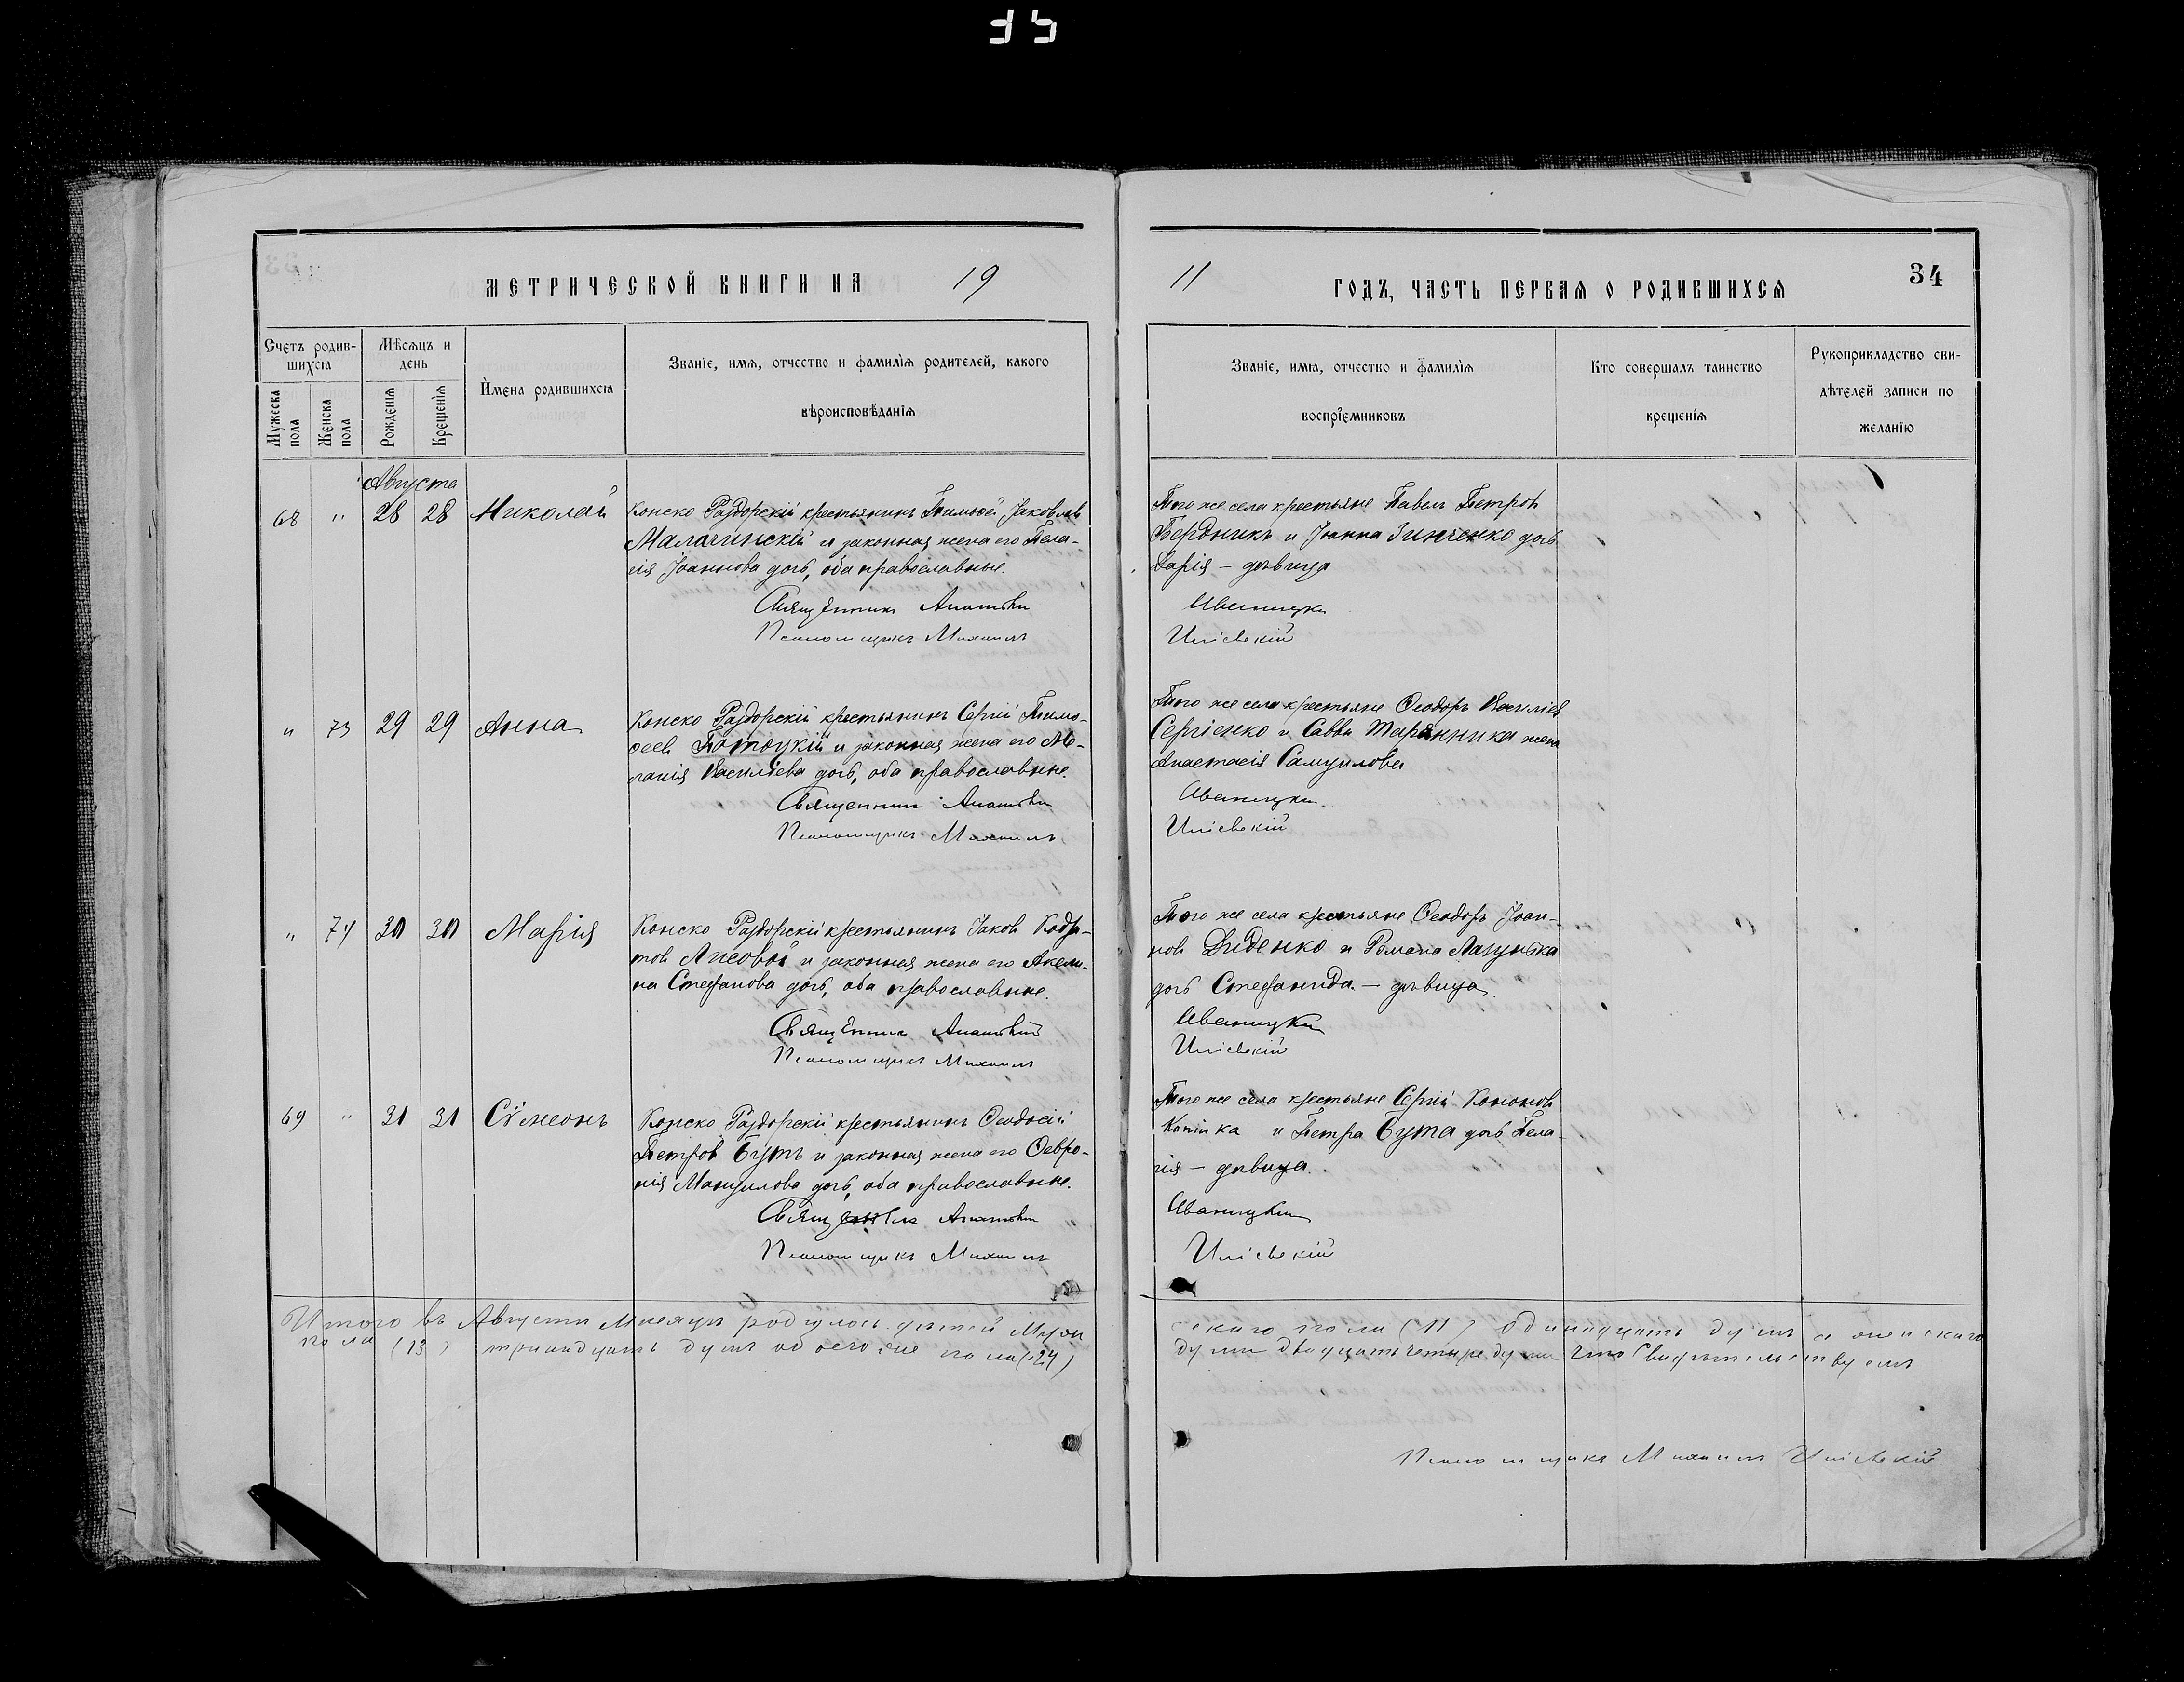 35
МЕТРИЧЕСКОЙ КНИГИ НА 19
11 ГОДЪ, ЧАСТЬ ПЕРВАЯ О РОДИВШИХСЯ 34
Счетъ родив-
шихся
Мужеска
пола
Женска
пола
Мѣсяцъ и
день
Рожденія
Крещенія
Имена родившихся
Званіе, имя, отчество и фамилія родителей, какого
вѣроисповѣданія
Званіе, имя, отчество и фамилія
воспріемниковъ
Кто совершалъ таинство
крещенія
Рукоприкладство сви-
дѣтелей записи по
желанію
Августа
68 " 28 28 Николай
Конско Раздорскій крестьянинъ Тимоѳей Іаковлев
Малачинскій и законная жена его Пела-
гія Іоаннова дочь, оба православные.
Священникъ
Псаломщикъ Михаилъ
Того же села крестьяне Павелъ Петров
Бердникъ и Іоанна Зинченко дочь
Дарія — дѣвица
Иваницки
Иліевскій
" 73 29 29 Анна
Конско Раздорскій крестьянинъ Сергій Тимо-
ѳеев Потоцкій и законная жена его Ме-
ланія Васильева дочь, оба православные.
Священникъ
Псаломщикъ Михаилъ
Того же села крестьяне Ѳеодоръ Василіев
Сергіенко и Саввы Таранника жена
Анастасія Самуилова
Иваницки
Иліевскій
" 74 30 30 Марія
Конско Раздорскій крестьянинъ Іаков Кодра-
тов Лисовой и законная жена его Акели-
на Стефанова дочь, оба православные.
Священникъ
Псаломщикъ Михаилъ
Того же села крестьяне Ѳеодоръ Іоан-
нов Диденко и Романа Лазунька
дочь Стефанида — дѣвица.
Иваницки
Иліевскій
69 " 31 31 Сѷмеонъ
Конско Раздорскій крестьянинъ Ѳеодосій
Петров Бутъ и законная жена его Ѳевро-
нія Мануилова дочь, оба православные.
Священникъ
Псаломщикъ Михаилъ
Того же села крестьяне Сергій Кононов
и Петра Бута дочь Пела-
гія — дѣвица.
Иваницки
Иліевскій
Итого въ Августѣ Мѣсяцѣ родилось дѣтей Муж
скаго пола (11) одинадцать душъ а женскаго
пола (13) тринадцать душъ обоего же пола (24)
души двадцать четыре души что Свидѣтельствуемъ
Псаломщикъ Михаилъ Иліевскій